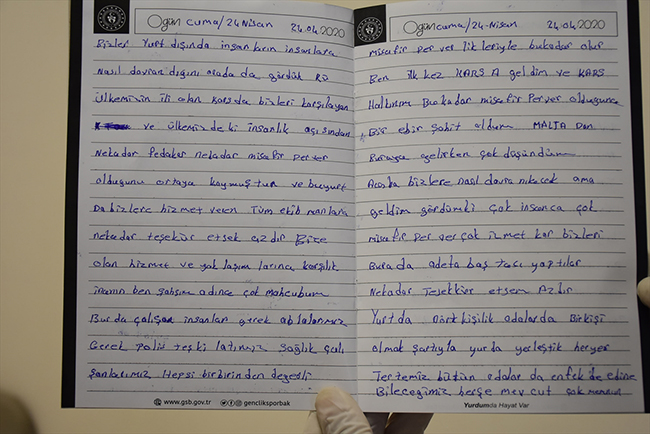 Ogün cuma/24 Nisan 24.04/2020
Bizler Yurt dışında insanların insanlara
Nasıl davran dığını orada da gördük kü
ülkemizin ili olan Karsda bizleri karşılayan
ve ülkemizde ki insanlık açısından
Nekadar Fedakar nekadar misafir perver
olduğunu ortaya koymuştur ve buyurt
Da bizlere hizmet veren Tüm ekib manlara
nekadar teşekür etsek azdır Bize
olan hizmet ve yak laşım larınca karşılık
inanın ben şahsım adına çok mahcubum
Burda çalışan insanlar gerek ablalarımız
Gerek polis teşki latımız Sağlık çalı
şanlarımız Hepsi birbirinden değerli
www.gsb.gov.tr gencliksporbak
Ogün cuma/24-Nisan 24.04/2020
misafir per ver lik leriyle bukadar olur
Ben ilk kez KARS A geldim ve KARS
Halkının Bukadar misafir Perver olduğuna
Bir ebir Şahit oldum MALTA Dan
Buraya gelirken çok düşündüm
Acaba bizlere nasıl davra nılacak ama
geldim gördümki çok insanca çok
misafir per ver çok izmet kar bizleri
Bura da adeta baş tacı yaptılar
Nekadar Teşekkür etsem Azdır
Yurtda Dört kişilik odalarda Birkişi
olmak şartıyla yurda yerleştik heryer
Tertemiz bütün odalar da enfek te edine
Bileceğimiz herşe mev cut çok memnun
Yurdumda Hayat Var